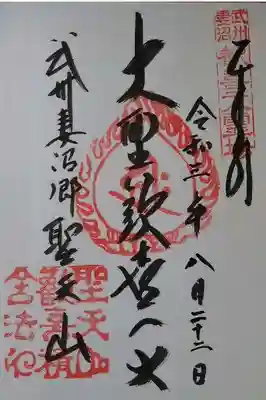 奉拝
令和三年 八月二十二日
大聖歓喜天
武州妻沼郷 聖天山
武州妻沼
聖天山
歓喜院